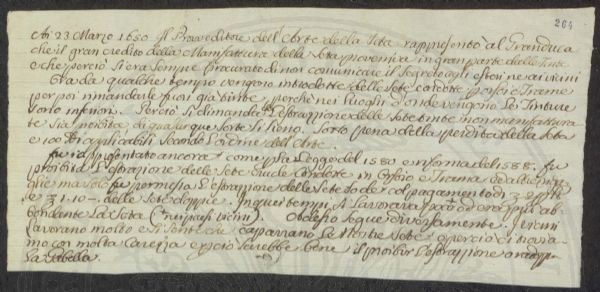 264
Adi 23 Marzo 1650 Il Proveditore dell'Arte della Seta rappresentò al Granduca
che il gran credito della Manifattura della Seta proveniva in gran parte dalle Tinte
e che perciò si era sempre procurato di non comunicare il segreto agli esteri ne ai vicini
Gra da qualche tempo vengono introdotte delle Sete condotte per farsi Trame
per poi rimandarle fuori già tinte, perchè nei luoghi d'onde vengono le Tinture
sono inferiori. Perciò si dimanda l'estrazzione delle Sete tinte non manifatturate
te sia proibita di qualunque sorte si sieno, sotto pena della perdita della Seta
e applicabili secondo l'ordine dell'Arte.
fu rappresentato ancora come p la Legge del 1580 e riforma del 1588. fu
proibita l'estrazione delle Sete crude condotte in Orsoio e Trama
que ma solo fu permessa l'estrazzione delle Sete sode col pagamento di
e 1.10 - delle Sete doppie. In quei tempi si lavorava
bondante la Seta (nei paesi vicini). Adesso segue diversamente. I vicini
lavorano molto e si sente che caparrano le nostre Sete e perciò ci trovia
mo con molta carezza e perciò sarebbe bene il proibir l'estrazzione
La Gabella.